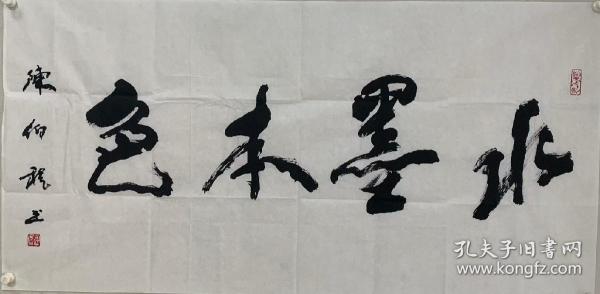 水墨本色
陳伯程书
孔夫子旧书网
www.kongfz.com